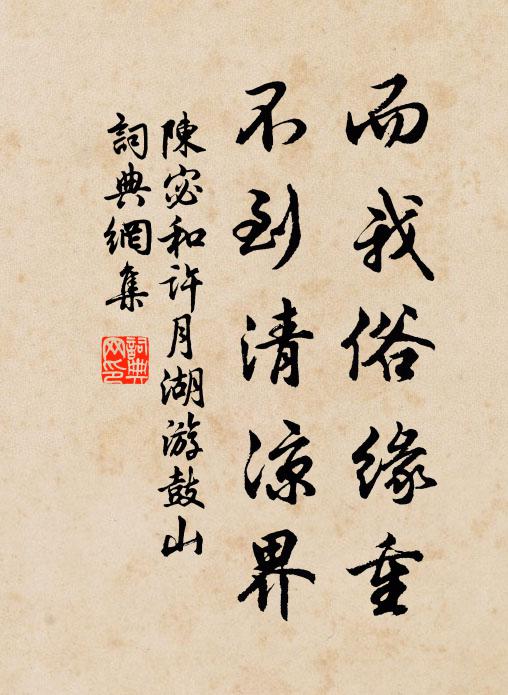 而我俗緣重
不到清凉界
陳宓和許月湖游鼓山
詞典網集
詞典网印